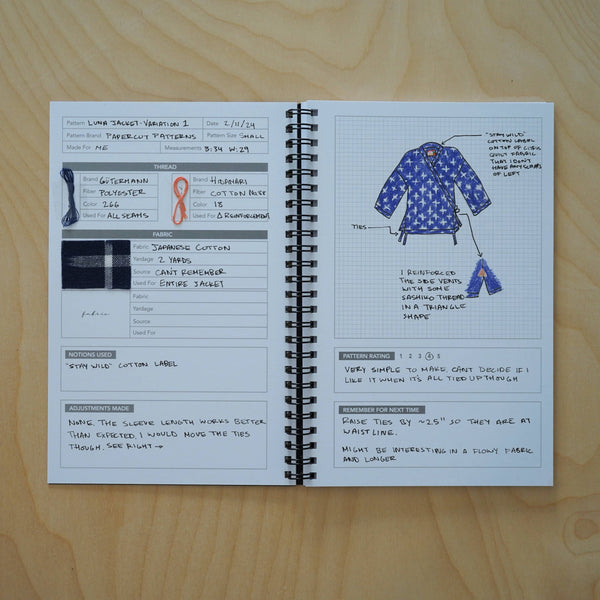 Pattern LUNA JACKET - VARIATION 1 Date 2/11/24
Pattern Brand PAPERCUT PATTERNS Pattern Size SMALL
Made For ME Measurements B:34 W:29
THREAD
Brand GÜTERMANN
Fiber POLYESTER
Color 266
Used For ALL SEAMS
Brand
Fiber COTTON
Color 18
Used For Δ REINFORCEMENT
FABRIC
Fabric JAPANESE COTTON
Yardage 2 YARDS
Source CAN'T REMEMBER
Used For ENTIRE JACKET
fabric
Fabric
Yardage
Source
Used For
NOTIONS USED
"STAY WILD" COTTON LABEL
ADJUSTMENTS MADE
NONE. THE SLEEVE LENGTH WORKS BETTER
THAN EXPECTED. I WOULD MOVE THE TIES
THOUGH, SEE RIGHT →
"STAY WILD"
COTTON LABEL
ON TOP OF
QUILT FABRIC
THAT I DON'T
HAVE ANY SCRAPS
OF LEFT
TIES
I REINFORCED
THE SIDE VENTS
WITH SOME
SASHIKO THREAD
IN A TRIANGLE
SHAPE
PATTERN RATING 1 2 3 4 5
VERY SIMPLE TO MAKE. CAN'T DECIDE IF I
LIKE IT WHEN IT'S ALL TIED UP THOUGH
REMEMBER FOR NEXT TIME
RAISE TIES BY SO THEY ARE AT
WAISTLINE.
MIGHT BE INTERESTING IN A FLOWY FABRIC
AND LONGER